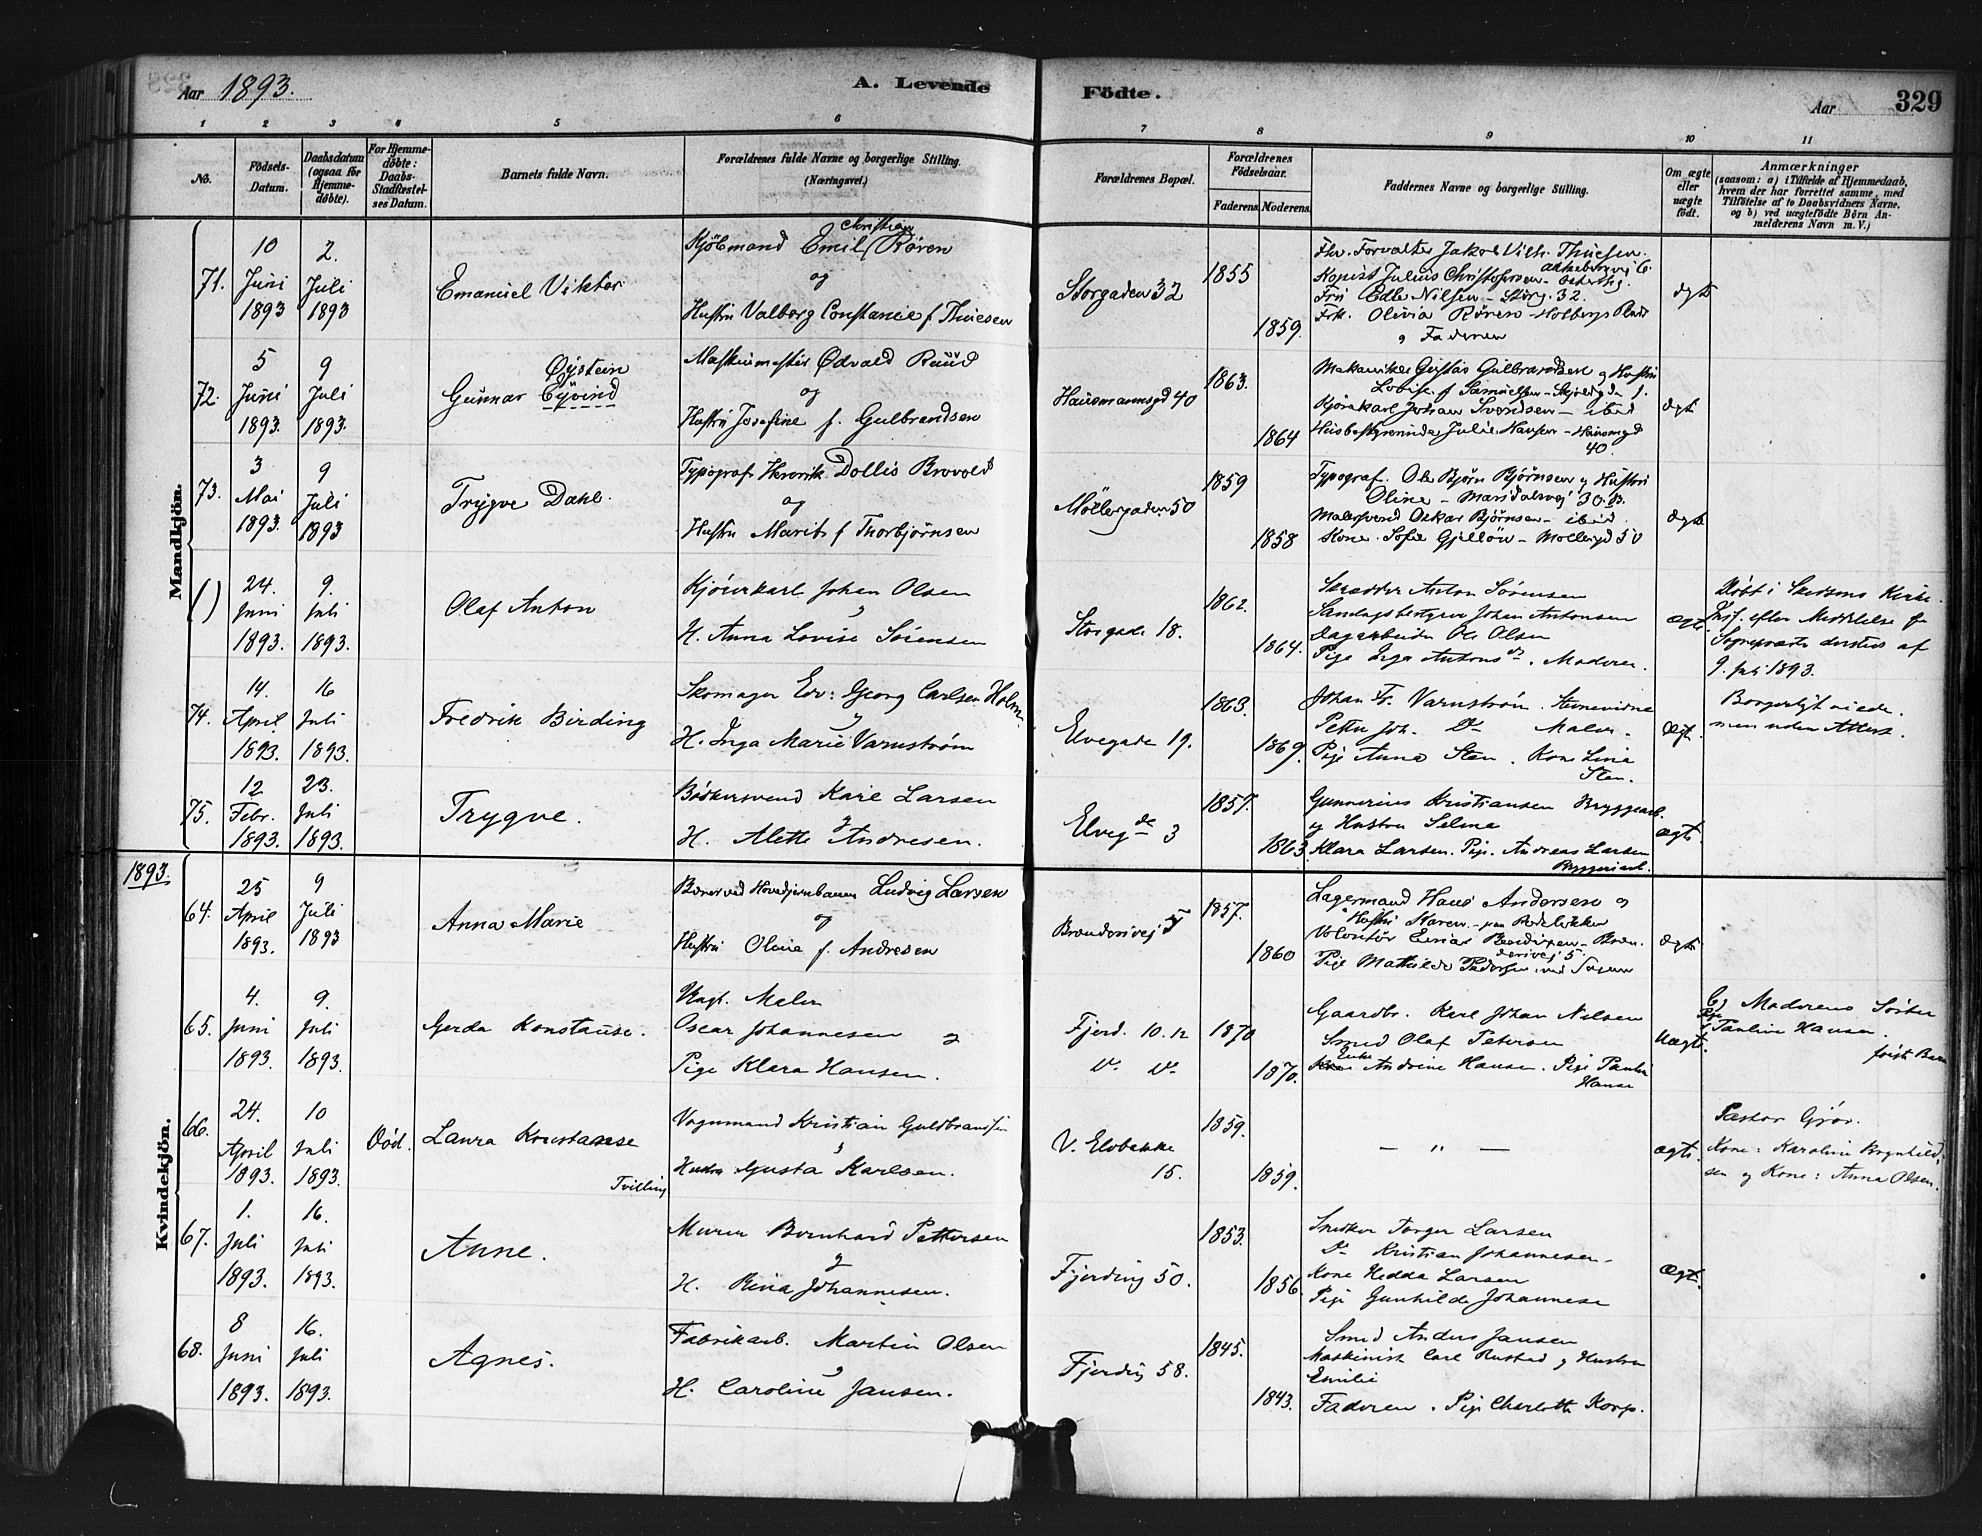 Aar 1893.
A. Levende Födte.
Aar 329
1 2 3 4 5 6 7 8 9 10 11
No.
Födsels-Datum.
Daabsdatum (ogsaa för Hjemmedöbte).
For Hjemmedöbte: Daabs-Stadfæstelses Datum.
Barnets fulde Navn.
Forældrenes fulde Navne og borgerlige Stilling. (Næringsvei.)
Forældrenes Bopæl.
Forældrenes Födselsaar.
Faderens. Moderens.
Faddernes Navne og borgerlige Stilling.
Om ægte eller uægte födt.
Anmærkninger
(saasom: a) i Tilfælde af Hjemmedaab, hvem der har forrettet samme, med Tilföielse af to Daabsvidners Navne, og b) ved uægtefödte Börn Anmelderens Navn m. V.)
Mandkjön.
71.
10 Juni 1893
2. Juli 1893
Emanuel Viktor
Kjøbmand Emil Christian Røren
og
Hustru Valborg Constance f Thuesen
Storgaden 32
1855
1859.
Fhv. Forvalter Jakob Vilh. Thuesen.
Kopist Julius Christophersen
Edle Nilsen - Storg. 32.
Frk. Olivia Røren - Holbergs Plads
og Faderen
ægte
72.
5 Juni 1893.
9 Juli 1893.
Gunnar Eyvind Øystein
Maskinmester Odvald Ruud
og
Hustru Josefine f. Gulbrandsen
Hausmannsgd 40
1863.
1864
Mekaniker Gustav Gulbrandsen og Hustru
Lovise f. Samuelsen
Kjørekarl Johan Svendsen - ibid
Husbestyrerinde Julie Hansen - Hausmgd
40.
ægte
73.
3 Mai 1893.
9 Juli 1893
Trygve Dahl.
Typograf Henrik Dollis Brovold
og
Hustru Marit f Thorbjørnsen
Møllergaden 50
1859
1858
Typograf. Ole Bjørn Bjørnsen og Hustru
Oline - Maridalsvej 30.B.
Malersvend Oskar Bjørnsen - ibid.
Kone Sofie - Mollergd 50
ægte
( )
24. Juni 1893.
9. Juli 1893.
Olaf Anton
Kjørekarl Johan Olsen
og
H. Anna Lovise Sørensen
Storgade 18.
1862.
1864.
Skrædder Anton Sørensen
Johan Antonsen
Dagarbeider Ole Olsen
Pige Inga Antons dr. Moderen.
ægte
Døbt i Kirke.
efter Meddelelse fr
Sognepræsten dersteds af
9. Juli 1893.
74.
14. April 1893.
16 Juli 1893.
Fredrik Birding
Skomager Edv: Georg Carlsen Holm
og
H. Inga Marie Varnstrøm
Elvegade 19.
1863.
1869.
Johan F. Varnstrøm
Petter Joh. Do Maler.
Pige Anna Sten. Kone Lina
Sten.
ægte
Borgerligt viede.
men uden Attest.
75.
12 Febr. 1893.
23. Juli 1893.
Trygve.
Bødkersvend Karl Larsen
og
H. Alette Andresen.
Elvegde 3
1857.
1863.
Gunnerius Kristiansen Bryggearb.
og Hustru Selma
Klara Larsen. Pige. Andreas Larsen
Bryggeriarb.
ægte
1893.
Kvindekjön.
64.
25 April 1893.
9 Juli 1893
Anna Marie
Hovedjernbanen Ludvig Larsen
og
Hustru Oline f. Andresen
Brænderivej 5
1857.
1860
Lagermand Hans Andersen og
Hustru Karen
Pige Mathilde Pedersen
ægte
65.
4. Juni 1893.
9. Juli 1893.
Gerda Konstanse.
Ungk. Maler
Oscar Johannesen og
Pige Klara Hansen.
Fjerd. 10.12
Do Do
1870
1870.
Gaardbr. Karl Johan Nilsen
Smed Olaf Petersen
Enke Andrine Hansen. Pige Paula
Hansen
Uægte.
Moderens Søster
Pige Pauline Hansen.
første Barn
66.
24. April 1893.
10 Juli 1893.
Død.
Laura Konstanse
Tvilling
Vognmand Kristian Guldbrandsen
og
Hustru Gusta Karlsen.
V. Elvbakke
15.
1859.
1859.
— " —
ægte.
Pastor Gjør.
Kone: Karoline
sen og Kone: Anna Olsen.
67.
1. Juli 1893.
16. Juli 1893.
Anne.
Murer Bernhard Pettersen
og
H. Rina Johannesen.
Fjerding 50.
1853.
1856.
Snedker Torger Larsen
Do Kristian Johannesen.
Kone Hedda Larsen
Pige Gunhilde Johannese
Ægt.
68.
8 Juni 1893.
16. Juli 1893.
Agnes.
Fabrikarb. Martin Olsen
og
H. Caroline Jansen.
Fjerding 58.
1845.
1843.
Smed Anders Jansen
Maskinist Carl Rustad og Hustru
Emilie
Faderen. Pige Charlotte Korp.